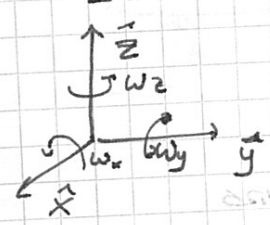 z⃗
ωz
ωx
ωy
y⃗
x⃗